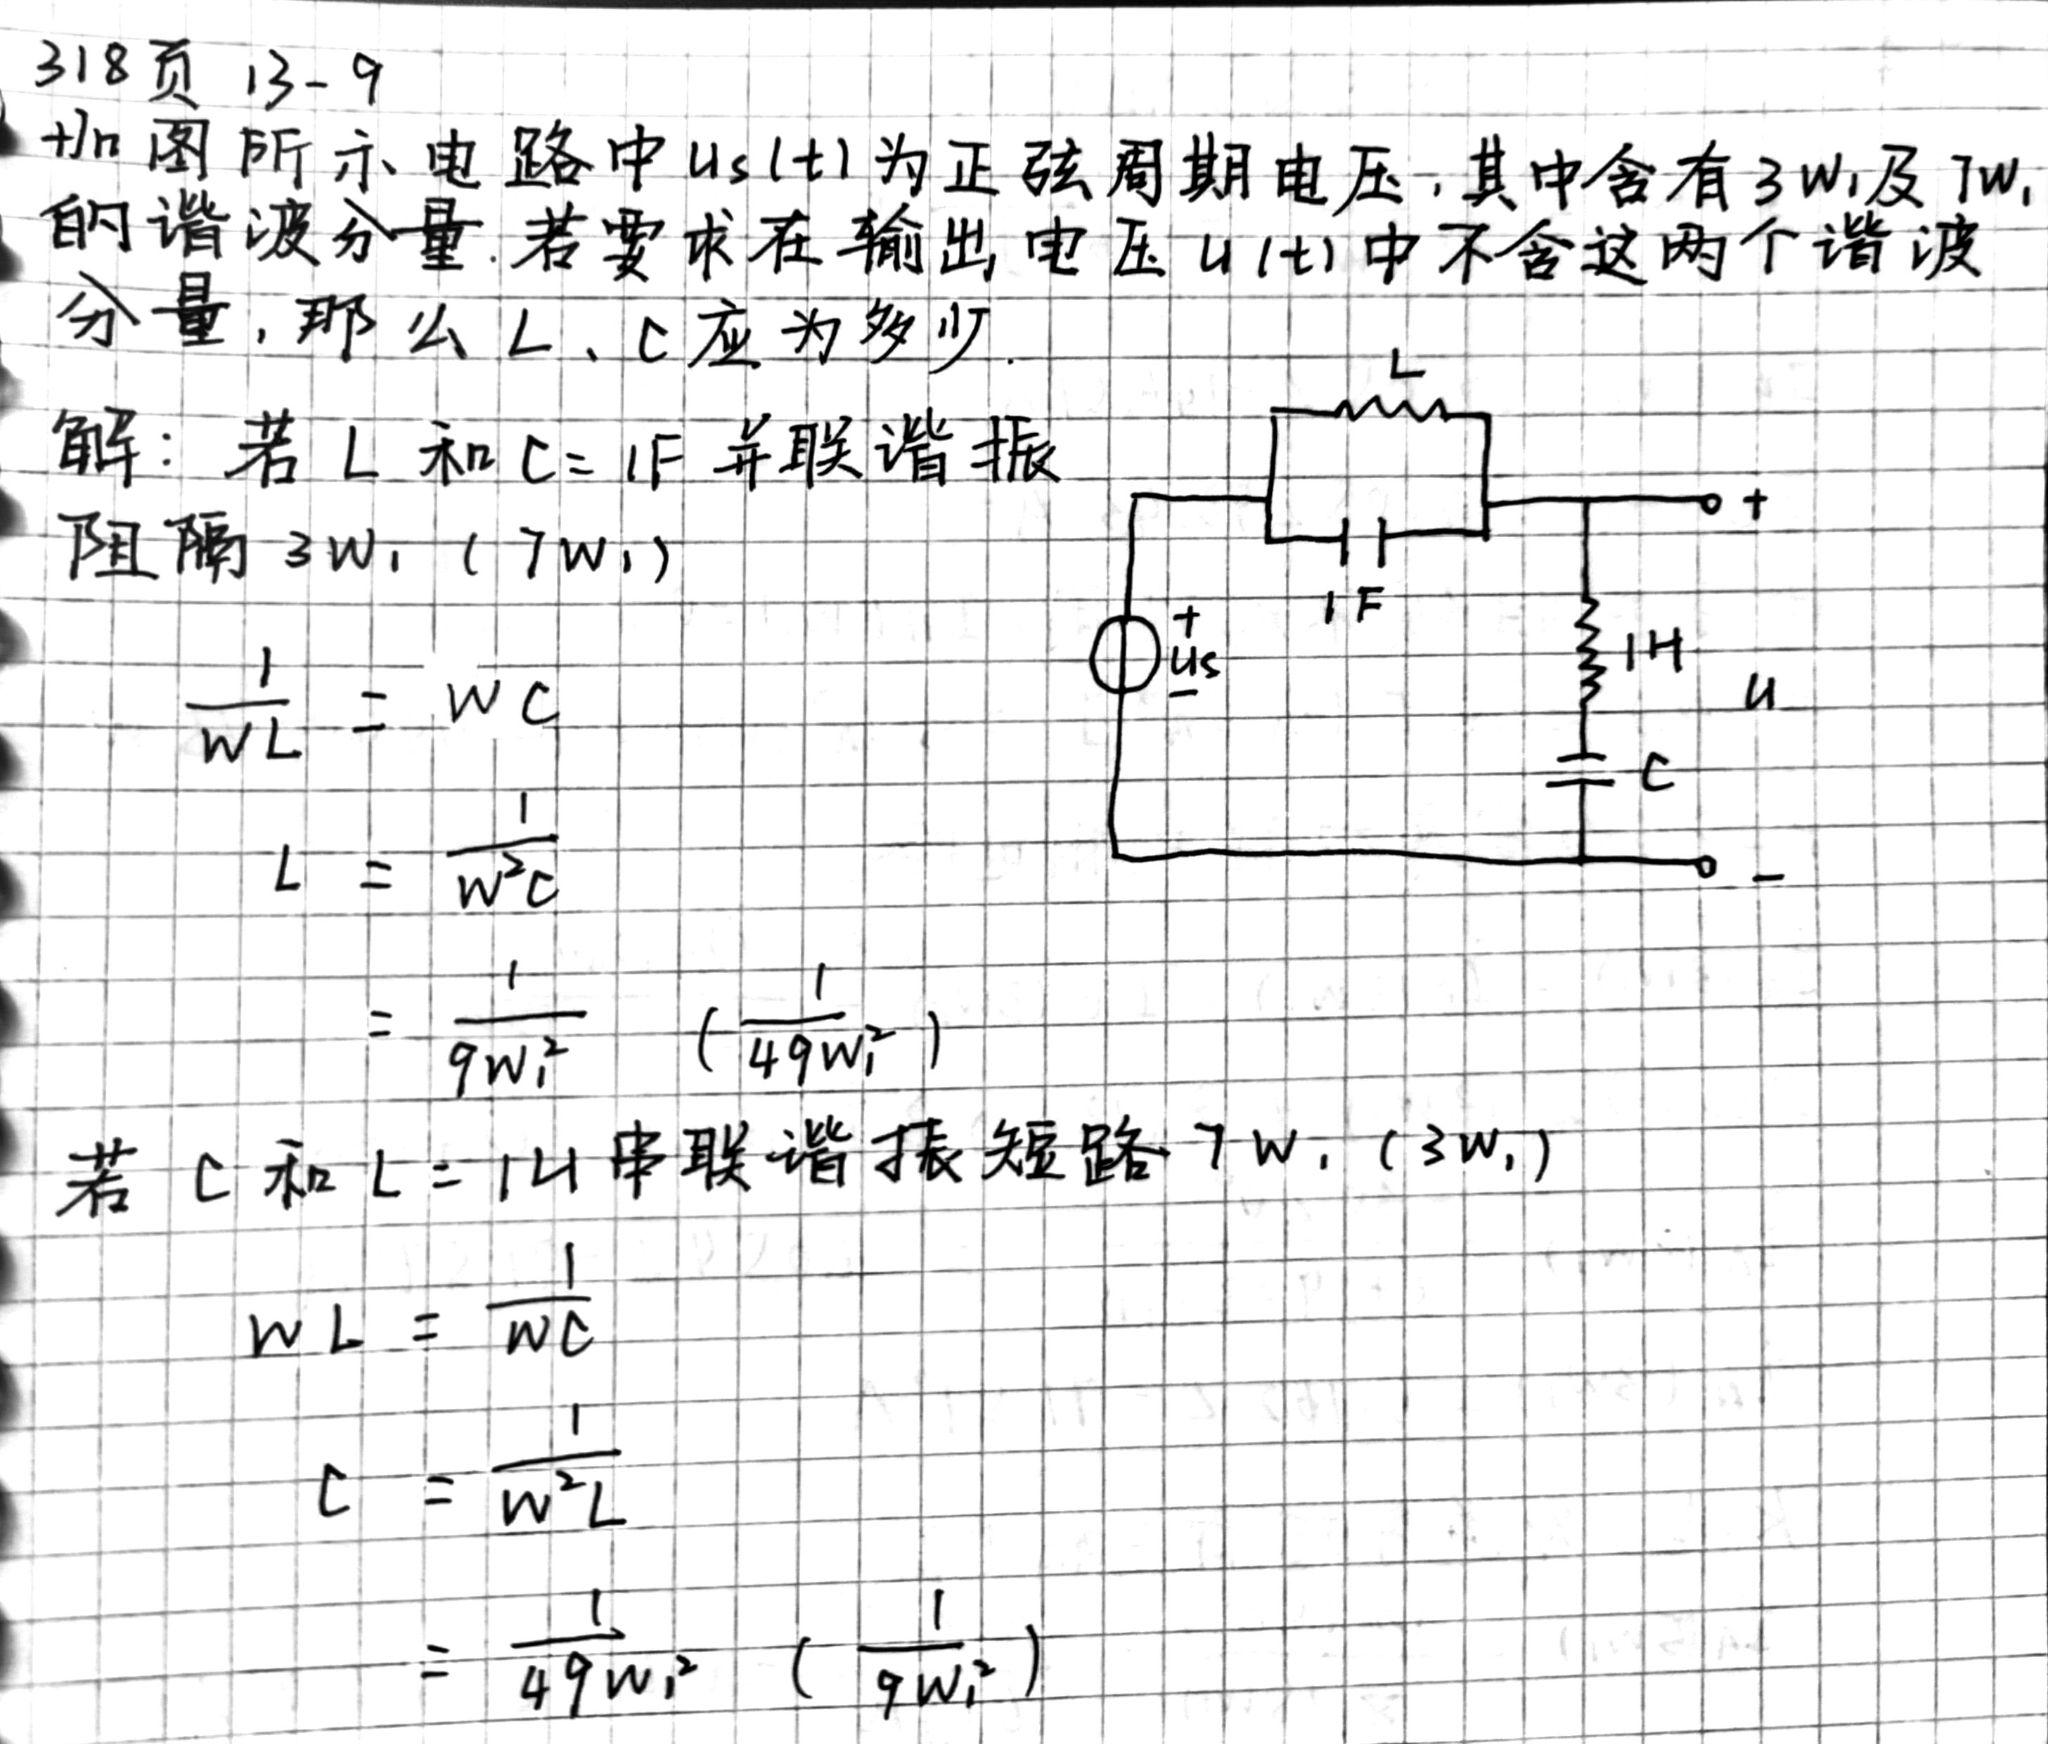 318页 13-9
如图所示电路中us(t)为正弦周期电压,其中含有3W₁及7W₁
的谐波分量.若要求在输出电压u(t)中不含这两个谐波
分量,那么L、C应为多少.
解: 若L和C=1F并联谐振
阻隔3W₁(7W₁)
1/WL = WC
L = 1/W²C
= 1/9W₁² (1/49W₁²)
L
1F
+
us
-
1H
C
+
u
-
若C和L=1H串联谐振短路7W₁(3W₁)
WL = 1/WC
C = 1/W²L
= 1/49W₁² (1/9W₁²)